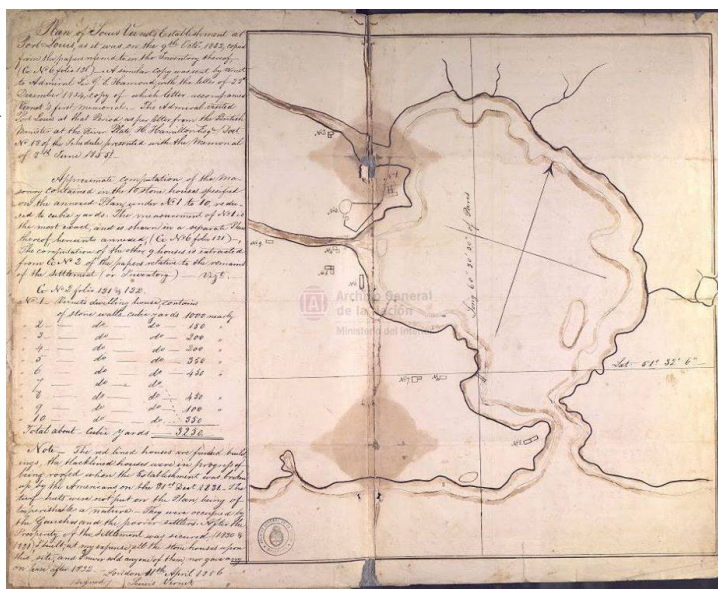 Plan of Louis Vernet's Establishment at
Port Louis, as it was on the 9th Octr. 1832, copied
from the papers referred to in the Inventory thereof
(Ce No 6 folio 126) — A similar copy was sent by Vernet
to Admiral Sir G. E. Hamond, with the letter of 22d
December 1834, copy of which letter accompanies
Vernet's first memorial. — The Admiral visited
Port Louis at that Period as per letter from the British
Minister at the River Plate H. Hamilton Esqr. (Doct
No 13 of the Schedule presented with the Memorial
of 2nd June 1855).
Approximate computation of the ma-
sonry contained in the 10 stone houses specified
on the annexed Plan, under No 1 to 10, redu-
ced to cubic yards. The measurement of No 1 is
the most exact, and is shown in a separate Plan
thereof hereunto annexed, (Ce No 6 folio 121) —
The computation of the other 9 houses is extracted
from Ce No 2 of the papers relative to the remains
of the settlement (or Inventory) —
Ce No 2 folio 131 & 132.
No 1 Vernets dwelling house, contains
of stone walls cubic yards 1000 nearly
2 — do — do — 150 "
3 — do — do — 200 "
4 — do — do — 200 "
5 — do — do — 350 "
6 — do — do — 450 "
7 — do — do
8 — do — do — 450 "
9 — do — do — 100 "
10 — do — do — 350 "
Total about — Cubic Yards — 3250
Note — The red lined houses are finished build-
ings, the blacklined houses were in progress of
being roofed when the Establishment was broken
up by the Americans on the 31st Decr 1831. The
turf huts were not put on the Plan being of
imperishable a nature — They were occupied by
the Gauchos and the poorer settlers. After the
Property of the Settlement was secured (1830 &
1831) I built, at my expense, all the stone houses upon
this site, and I never sold any one of them, nor gave any
on lease after 1832.
London 11th April 1856
(signed) Louis Vernet
No 2
No 1
No 9
No 7
No 8
Long 60° 20' 20" of Paris
Lat: 51° 32' 6"
Archivo General
de la Nación
Ministerio del Interior